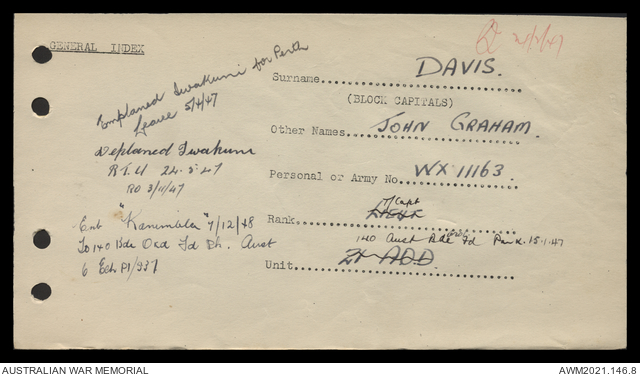 GENERAL INDEX
Emplaned Iwakuni for Perth
Leave 5/4/47
Deplaned Iwakuni
R.T.U 24.5.47
RO 3/11/47
Emb "Kanimbla" 7/12/48
To 140 Bde Ord Fd Pk. Aust
6 Ech P1/337
Surname DAVIS.
(BLOCK CAPITALS)
Other Names JOHN GRAHAM.
Personal or Army No. WX 11163.
T/Capt
Rank Lieut
140 Aust Bde Ord Fd Park. 15.1.47
Unit A.O.D.
AUSTRALIAN WAR MEMORIAL
AWM2021.146.8